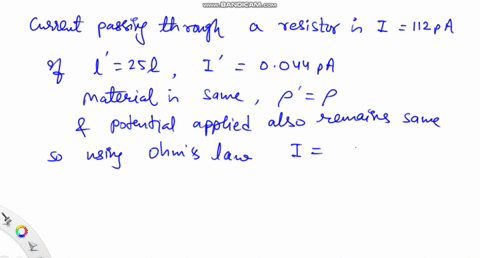 WWW.BANDICAM.COM
Current passing through a resistor is I = 112 pA
If l' = 25l , I' = 0.044 pA
Material is same, ρ' = ρ
& potential applied also remains same
so using Ohm's law I =